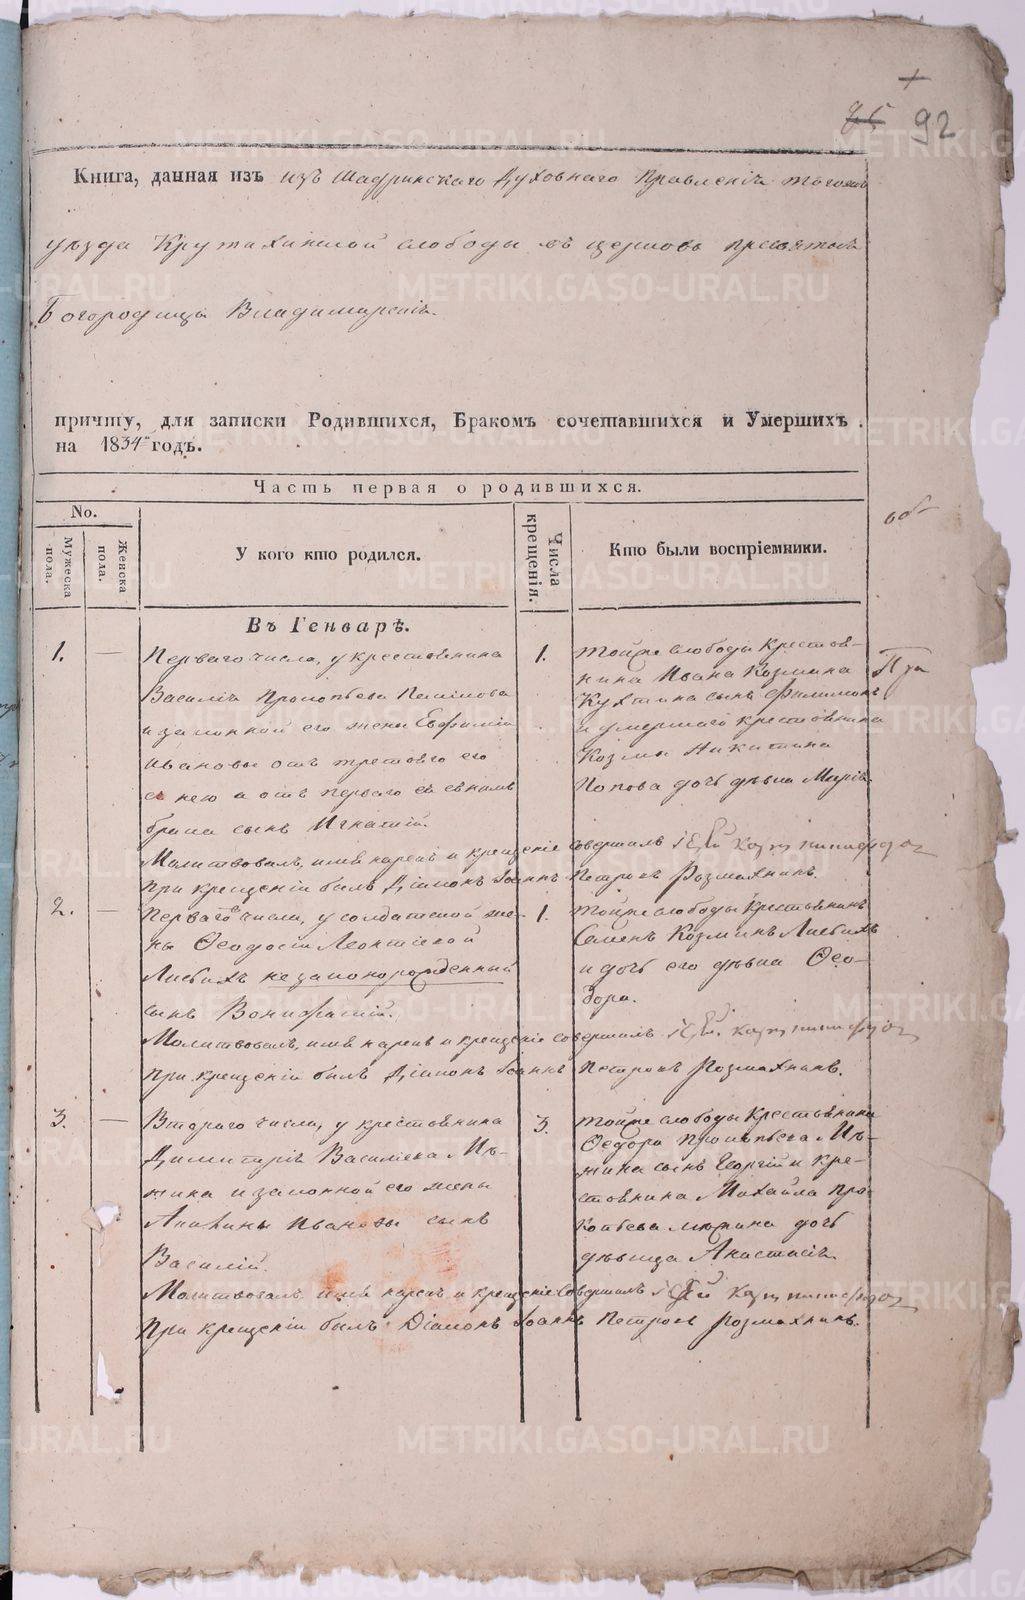 92
Книга, данная изъ изъ Шадринскаго Духовнаго Правленія тогожъ
уѣзда Крутихинской слободы въ церковь пресвятыя
Богородицы Владимирскія
причту, для записки Родившихся, Бракомъ сочетавшихся и Умершихъ
на 1834 годъ.
Часть первая о родившихся.
No.
Мужеска пола.
Женска пола.
У кого кто родился.
Числа крещенія.
Кто были воспріемники.
Въ Генварѣ.
1. —
Перваго числа, у крестьянина
Василія Прокопьева
и законной его жены Евфиміи
Ивановы отъ третьяго его
съ нею а отъ перваго ея съ нимъ
брака сынъ Игнатій.
1.
Тойже слободы Крестья-
нина Ивана Козмина
сынъ Филимонъ
и умершаго крестьянина
Козмы Никитина
Попова дочь дѣвка Марія
Молитвовалъ, имя нарекъ и крещеніе совершалъ
При крещеніи былъ Діаконъ Іоаннъ Петровъ Розмахнинъ.
2. —
Перваго числа, у солдатской же-
ны Ѳеодосіи Леонтіевой
незаконорожденный
сынъ Вонифатій.
1.
Тойже слободы Крестьянинъ
Семенъ Козминъ
и дочь его дѣвка Ѳео-
дора.
Молитвовалъ, имя нарекъ и крещеніе совершалъ
При крещеніи былъ Діаконъ Іоаннъ Петровъ Розмахнинъ.
3. —
Втораго числа, у крестьянина
Димитрія Василіева
и законной его жены
Ивановы сынъ
Василій.
3.
Тойже слободы Крестьянина
Ѳедора Прокопьева
сынъ Георгій и кре-
стьянина Михайла Про-
копьева дочь
дѣвица Анастасія
Молитвовалъ, имя нарекъ и крещеніе совершалъ
При крещеніи былъ Діаконъ Іоаннъ Петровъ Розмахнинъ.
METRIKI.GASO-URAL.RU